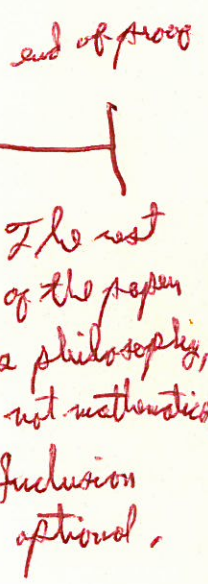 end of proof
The rest
of the paper
is philosophy,
not mathematics
Inclusion
optional.